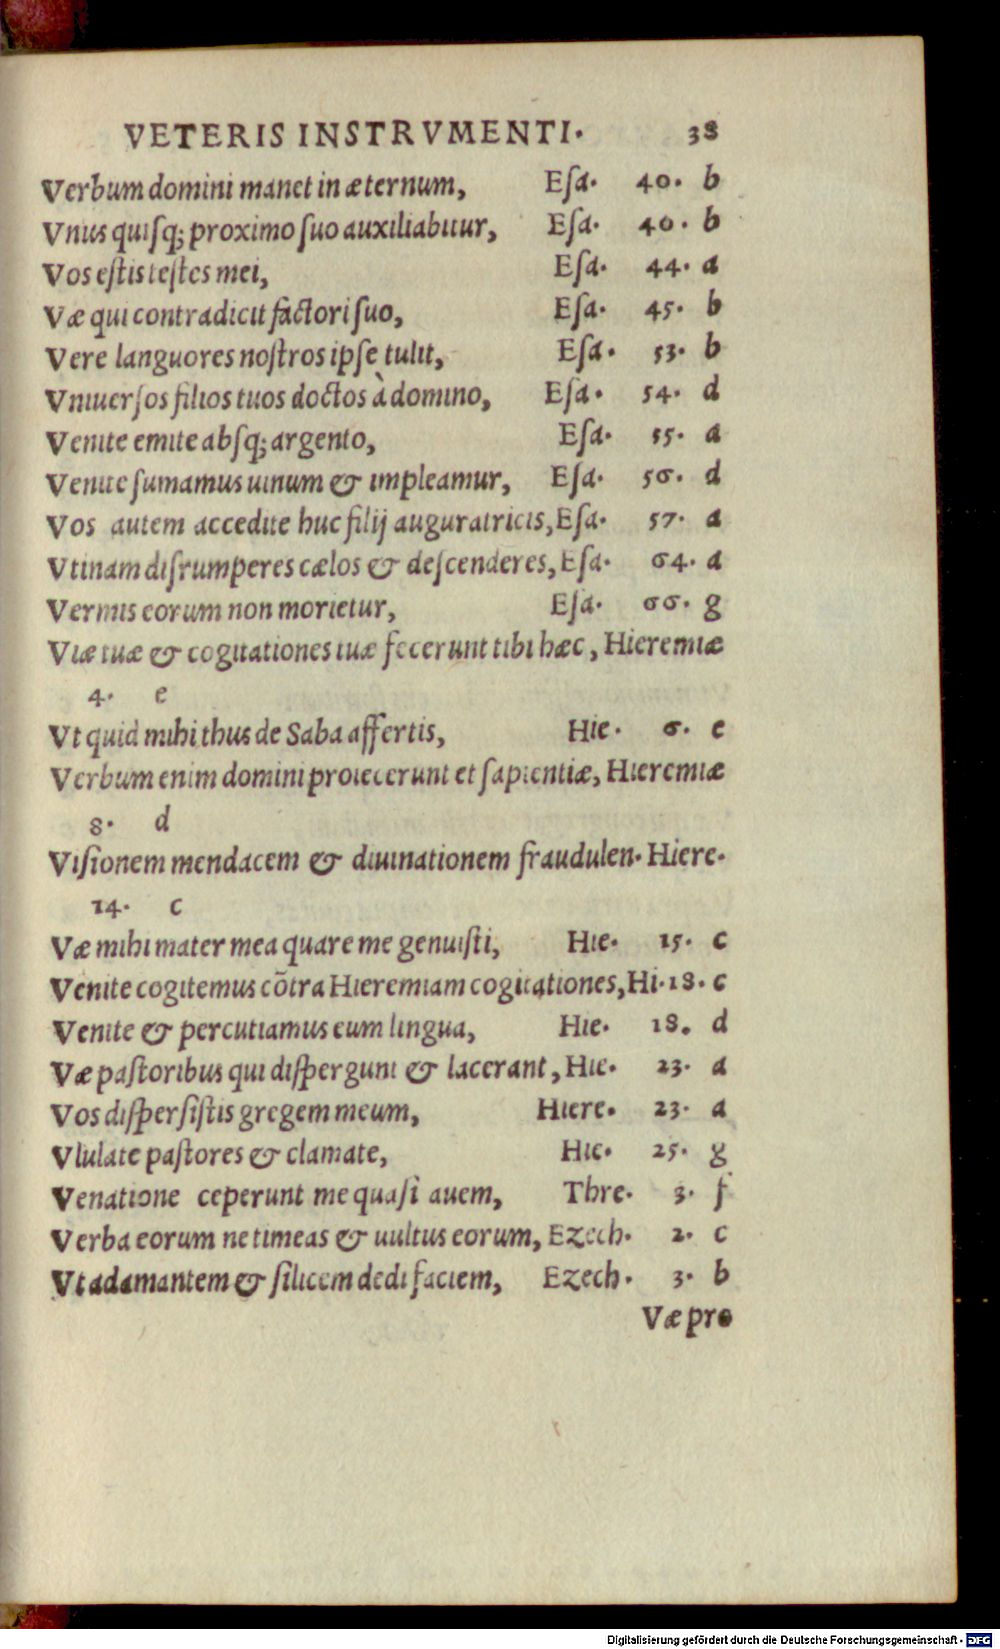 VETERIS INSTRVMENTI. 38
Verbum domini manet in æternum, Esa. 40. b
Vnus quisq; proximo suo auxiliabitur, Esa. 40. b
Vos estis testes mei, Esa. 44. a
Væ qui contradicit factori suo, Esa. 45. b
Vere languores nostros ipse tulit, Esa. 53. b
Vniuersos filios tuos doctos à domino, Esa. 54. d
Venite emite absq; argento, Esa. 55. a
Venite sumamus uinum & impleamur, Esa. 56. d
Vos autem accedite huc filij auguratricis, Esa. 57. a
Vtinam disrumperes cælos & descenderes, Esa. 64. a
Vermis eorum non morietur, Esa. 66. g
Viæ tuæ & cogitationes tuæ fecerunt tibi hæc, Hieremiæ
4. e
Vt quid mihi thus de Saba affertis, Hie. 6. e
Verbum enim domini proiecerunt et sapientiæ, Hieremiæ
8. d
Visionem mendacem & diuinationem fraudulen. Hiere.
14. c
Væ mihi mater mea quare me genuisti, Hie. 15. c
Venite cogitemus cõtra Hieremiam cogitationes, Hi. 18. c
Venite & percutiamus eum lingua, Hie. 18. d
Væ pastoribus qui dispergunt & lacerant, Hie. 23. a
Vos dispersistis gregem meum, Hiere. 23. a
Vlulate pastores & clamate, Hie. 25. g
Venatione ceperunt me quasi auem, Thre. 3. f
Verba eorum ne timeas & uultus eorum, Ezech. 2. c
Vt adamantem & silicem dedi faciem, Ezech. 3. b
Væ pro
Digitalisierung gefördert durch die Deutsche Forschungsgemeinschaft - DFG